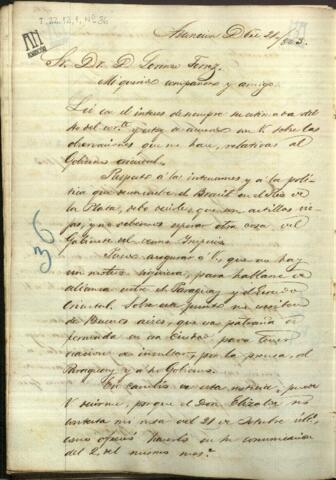 T. 22.12.1, Nº 36
Asuncion Dbre 21/863.
Sr. Dr. D. Lorenzo Torres.
Mi querido compañero y amigo.
Leí con el interes de siempre su estimada del
del cor.te y estoy de acuerdo con V. sobre las
observaciones que me hace, relativas al
Gobierno oriental.
Respecto á las intenciones y á la polí-
tica que el Brasil en el Rio de
la Plata, debo decirle, que son ardides vie-
jos, y no debemos esperar otra cosa del
Gabinete del vecino Imperio.
Puedo asegurar á V., que no hay
un motivo siquiera, para hablarse de
alianza entre el Paraguay y el Estado
Oriental. Sobre este punto me escriben
de Buenos aires, que es patraña
formada en esa Ciudad, para tener
ocasion de insultar, por la prensa, al
Paraguay y á su Gobierno.
En cambio de esta noticia, puede
V. decirme, porque el Dor. Elizalde no
contesta mi nota del 21 de Octubre últº,
como ofreció hacerlo en su comunicacion
del 2 del mismo mes.
36